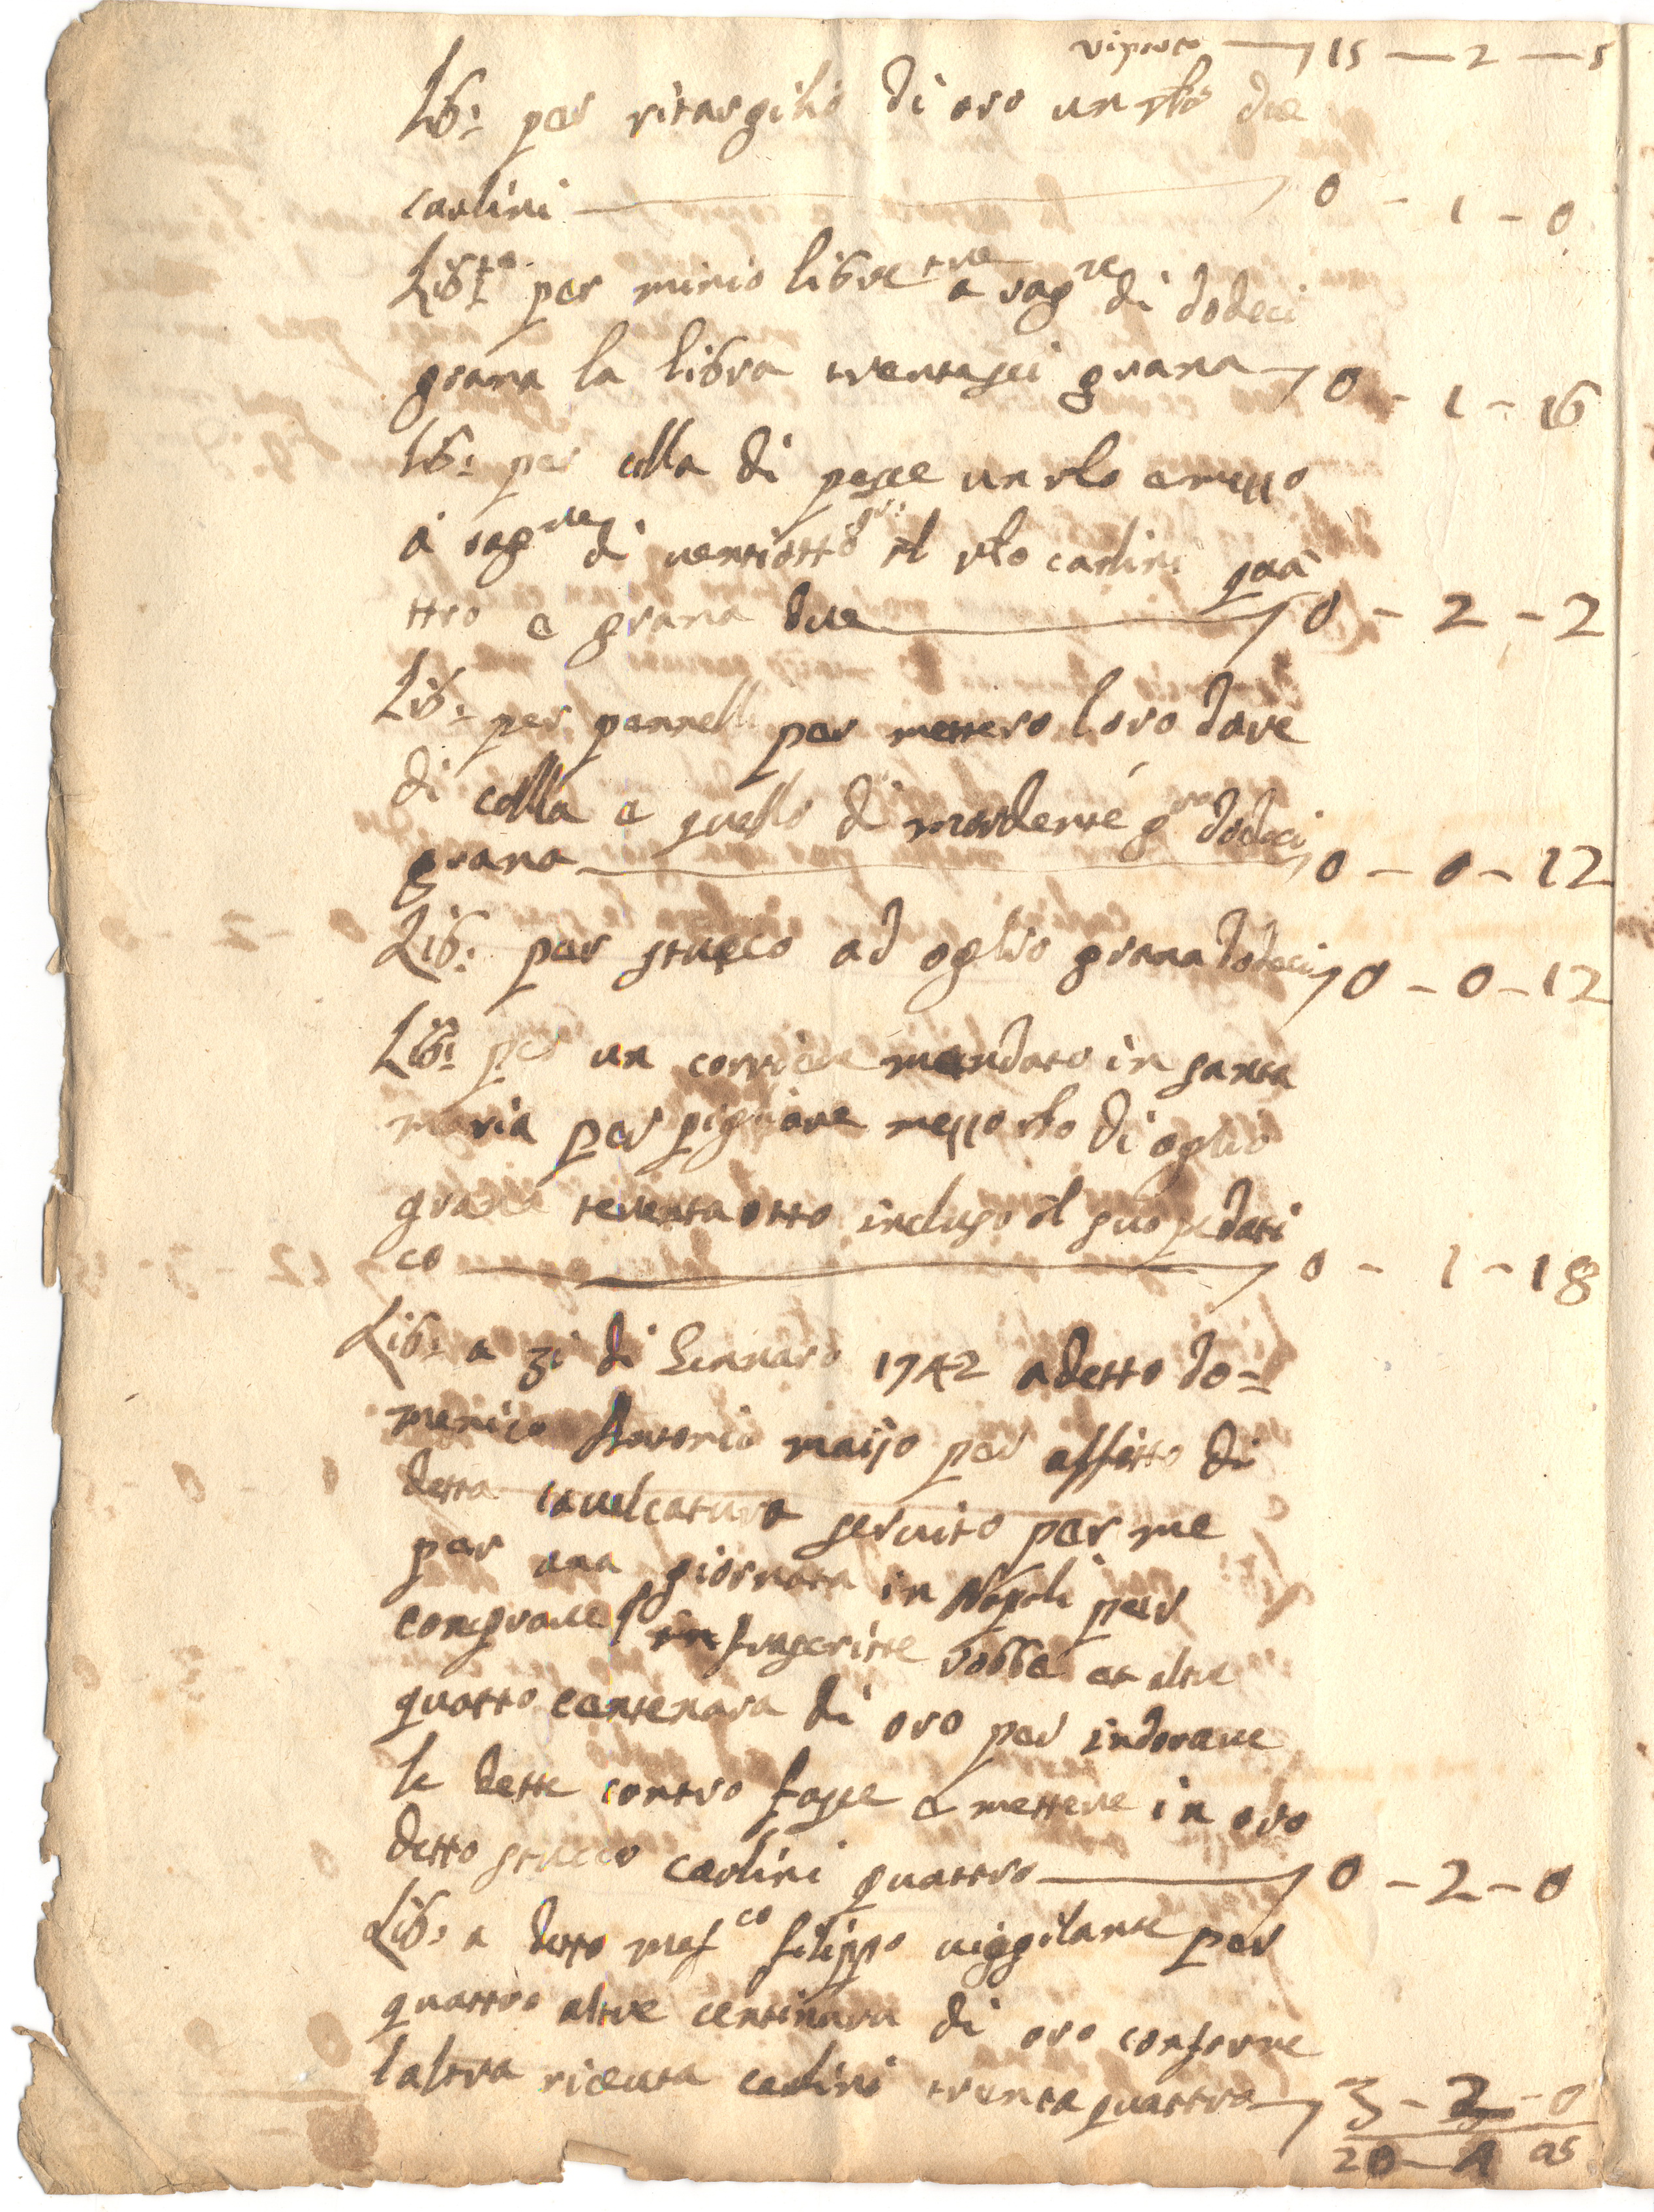 riporto — 15 — 2 — 5
Lib: per ritargilio di oro un rlo due
carlini — 0 - 1 - 0
Lib.to per minio libre tre a rag.ne di dodeci
grana la libra trentasei grana — 0 - 1 - 16
Lib: per colla di pesce un rlo e mezzo
a rag.ne di ventiotto gr: il rlo carlini qua
ttro e grana due — 0 - 2 - 2
Lib: per pennelli per mettere loro dare
di collla e quello di mordente g.na dodeci
grana — 0 - 0 - 12
Lib: per stucco ad oglio grana dodeci — 0 - 0 - 12
Lib: per un corriere mandato in santa
maria per pigliare mezzo rlo di oglio
grana trentaotto incluso il suo pedati
co — 0 - 1 - 18
Lib: a 31 di Gennaro 1742 a detto Do=
menico Antonio maijo per affitto di
detta cavalcatura servito per me
per una giornata in Napoli per
comprare l'infrascritte robbe et altre
quatto centenara di oro per indorare
le dette contro fasce e mettere in oro
detto stucco carlini quattro — 0 - 2 - 0
Lib: a detto mag.co filippo viggilante per
quattro altre centinara di oro conforme
laltra riceuta carlini trenta quattro — 3 - 2 - 0
20 - 1 05